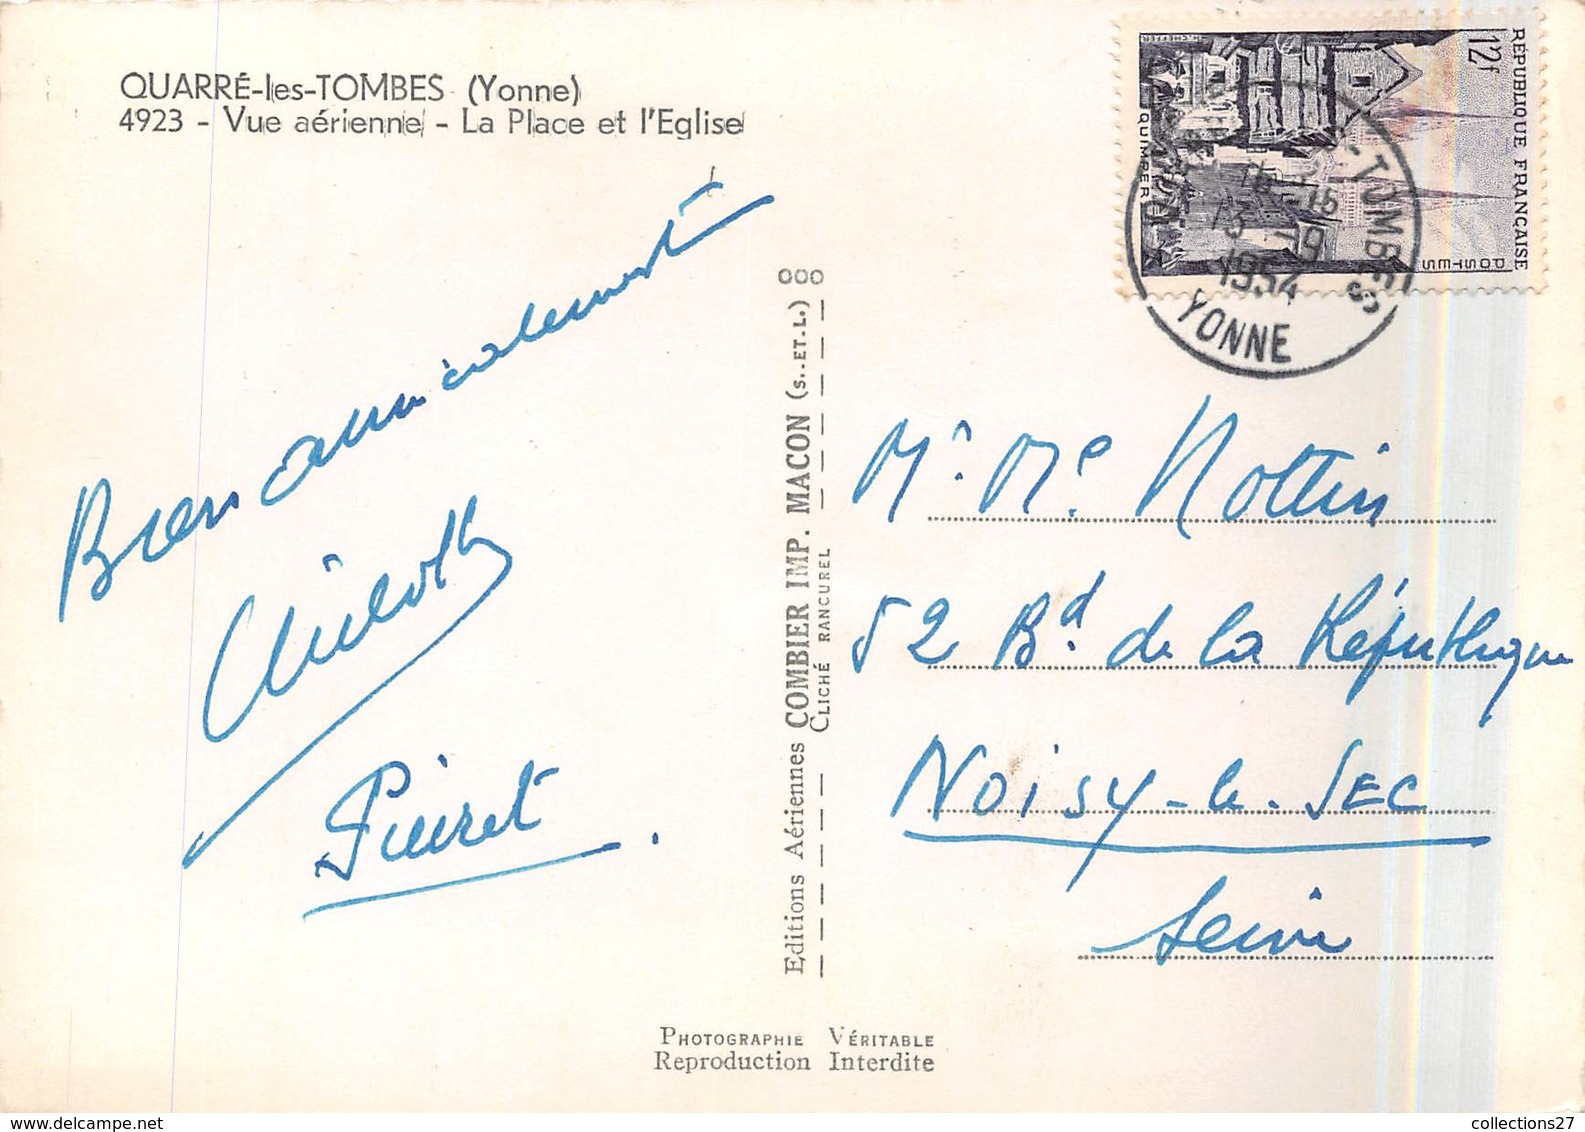 QUARRÉ-les-TOMBES (Yonne)
4923 - Vue aérienne - La Place et l'Eglise
Bien amicalement
Pierret
Editions Aériennes COMBIER IMP. MACON (S.-ET-L.)
CLICHÉ RANCUREL
RÉPUBLIQUE FRANÇAISE
12f
POSTES
QUIMPER
H. CHEFFER
TOMBES
16-15
13-9
1954
YONNE
Mr. Me. Nottin
52 Bd. de la République
NOISY-le-SEC
Seine
PHOTOGRAPHIE VÉRITABLE
Reproduction Interdite
collections27